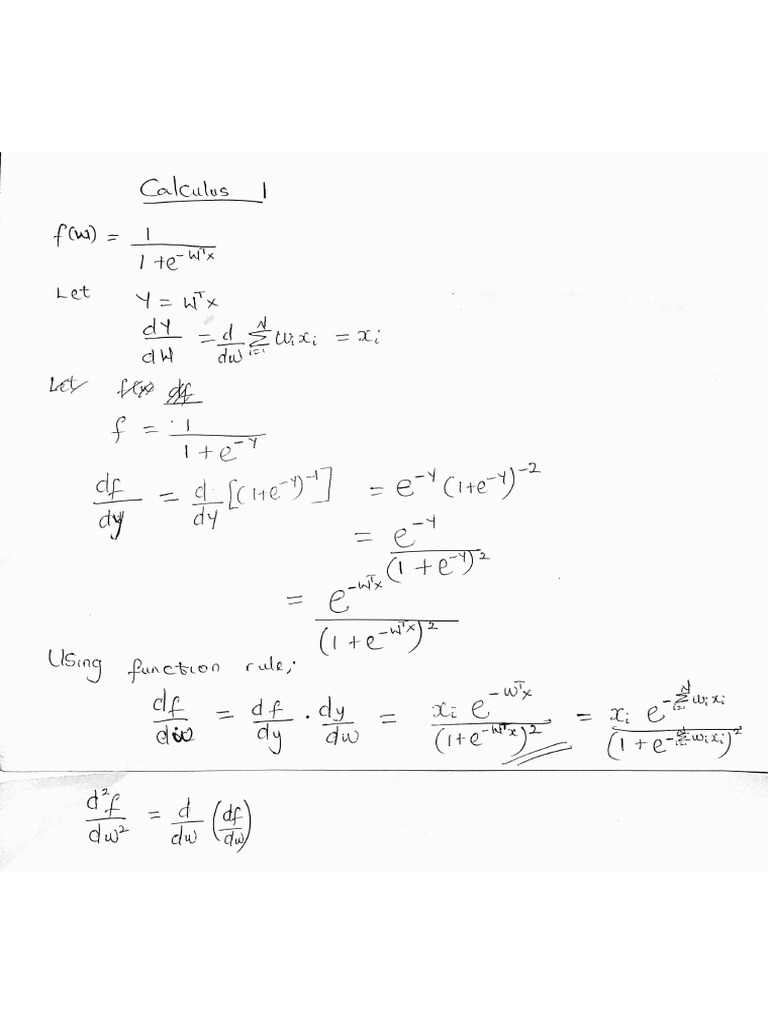 Calculus 1
f(w) = 1 / (1 + e^{-W^T x})
Let Y = W^T x
dY/dW = d/dw Σ_{i=1}^{N} w_i x_i = x_i
Let f(x) df
f = 1 / (1 + e^{-Y})
df/dy = d/dy [(1+e^{-Y})^{-1}] = e^{-Y} (1+e^{-Y})^{-2}
= e^{-Y} / (1 + e^{-Y})^2
= e^{-W^T x} / (1 + e^{-W^T x})^2
Using function rule;
df/dw = df/dy · dy/dw = x_i e^{-W^T x} / (1+e^{-W^T x})^2 = x_i e^{-Σ_{i=1}^{N} w_i x_i} / (1 + e^{-Σ_{i=1}^{N} w_i x_i})^2
d^2f/dw^2 = d/dw (df/dw)